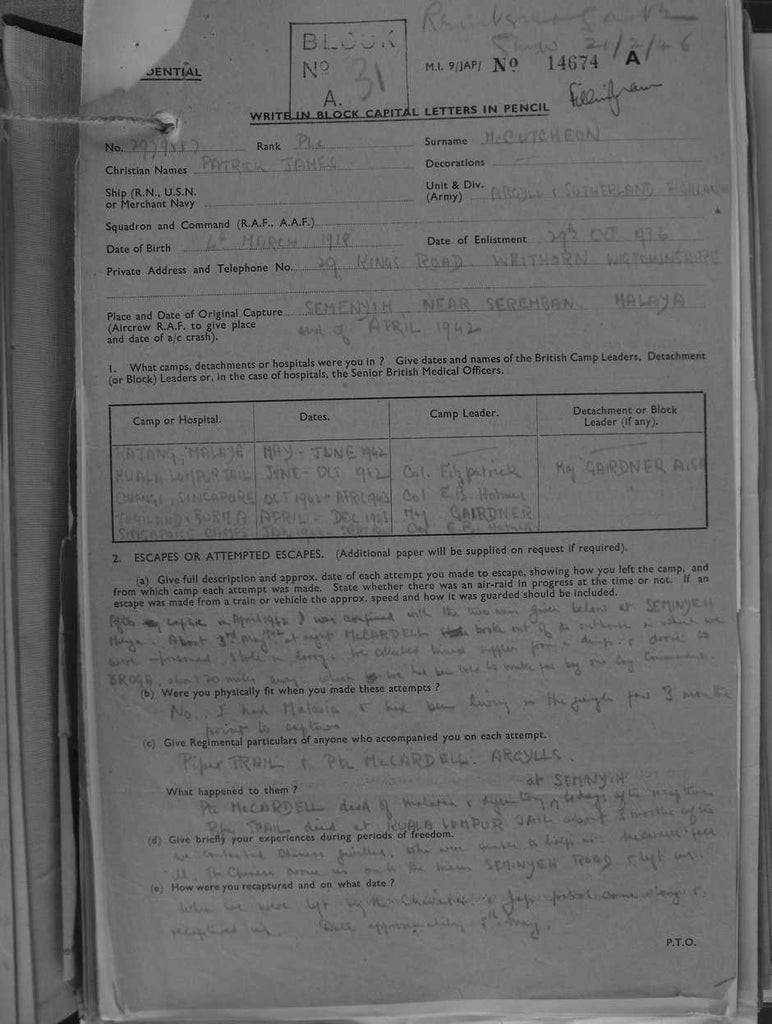 DENTIAL
BLOCK
Nº 31
A.
21/2/46
M.I. 9/JAP/ Nº 14674 A
WRITE IN BLOCK CAPITAL LETTERS IN PENCIL
No. Rank Pte Surname McCUTCHEON
Christian Names PATRICK JAMES Decorations
Ship (R.N., U.S.N. or Merchant Navy
Unit & Div. (Army) ARGYLL & SUTHERLAND HIGHLAND
Squadron and Command (R.A.F., A.A.F.)
Date of Birth 4th MARCH 1918 Date of Enlistment 29th OCT 1936
Private Address and Telephone No. 29 KINGS ROAD WHITHORN WIGTOWNSHIRE
Place and Date of Original Capture SEMENYIH NEAR SEREMBAN MALAYA
(Aircrew R.A.F. to give place and date of a/c crash). end of APRIL 1942
1. What camps, detachments or hospitals were you in ? Give dates and names of the British Camp Leaders, Detachment
(or Block) Leaders or, in the case of hospitals, the Senior British Medical Officers.
Camp or Hospital. Dates. Camp Leader. Detachment or Block Leader (if any).
KAJANG, MALAYA MAY - JUNE 1942
KUALA LUMPUR JAIL JUNE - OCT 1942 Col. Fitzpatrick Maj GAIRDNER A&SH
CHANGI, SINGAPORE OCT 1942 - APRIL 1943 Col E.B. Holmes
THAILAND & BURMA APRIL - DEC 1943 Maj GAIRDNER
SINGAPORE CAMPS Col E.B. Holmes
2. ESCAPES OR ATTEMPTED ESCAPES. (Additional paper will be supplied on request if required).
(a) Give full description and approx. date of each attempt you made to escape, showing how you left the camp, and
from which camp each attempt was made. State whether there was an air-raid in progress at the time or not. If an
escape was made from a train or vehicle the approx. speed and how it was guarded should be included.
After my capture in April 1942 I was confined with the two men given below at SEMINYEH
Malaya. About 3rd May at night McCARDELL broke out of the outhouse in which we
were imprisoned, stole a lorry. We collected supplies from a dump & drove to
BROGA, about 20 miles away, which we had been told to make for by our Coy Commander.
(b) Were you physically fit when you made these attempts ?
No. I had Malaria & had been living in the jungle for 3 months
prior to capture
(c) Give Regimental particulars of anyone who accompanied you on each attempt.
Piper TRAIL & Pte McCARDELL. ARGYLLS.
What happened to them ? at SEMNYIH
Pte McCARDELL died of malaria & dysentery days after recapture
TRAIL died at KUALA LUMPUR JAIL about 3 months after
(d) Give briefly your experiences during periods of freedom.
We contacted Chinese guerillas, who were unable to help us. McCardell fell
ill. The Chinese drove us on to the main SEMINYEH ROAD & left us.
(e) How were you recaptured and on what date ?
When we were left by the Chinese a Jap patrol came along &
recaptured us. Date approximately 8th May.
P.T.O.